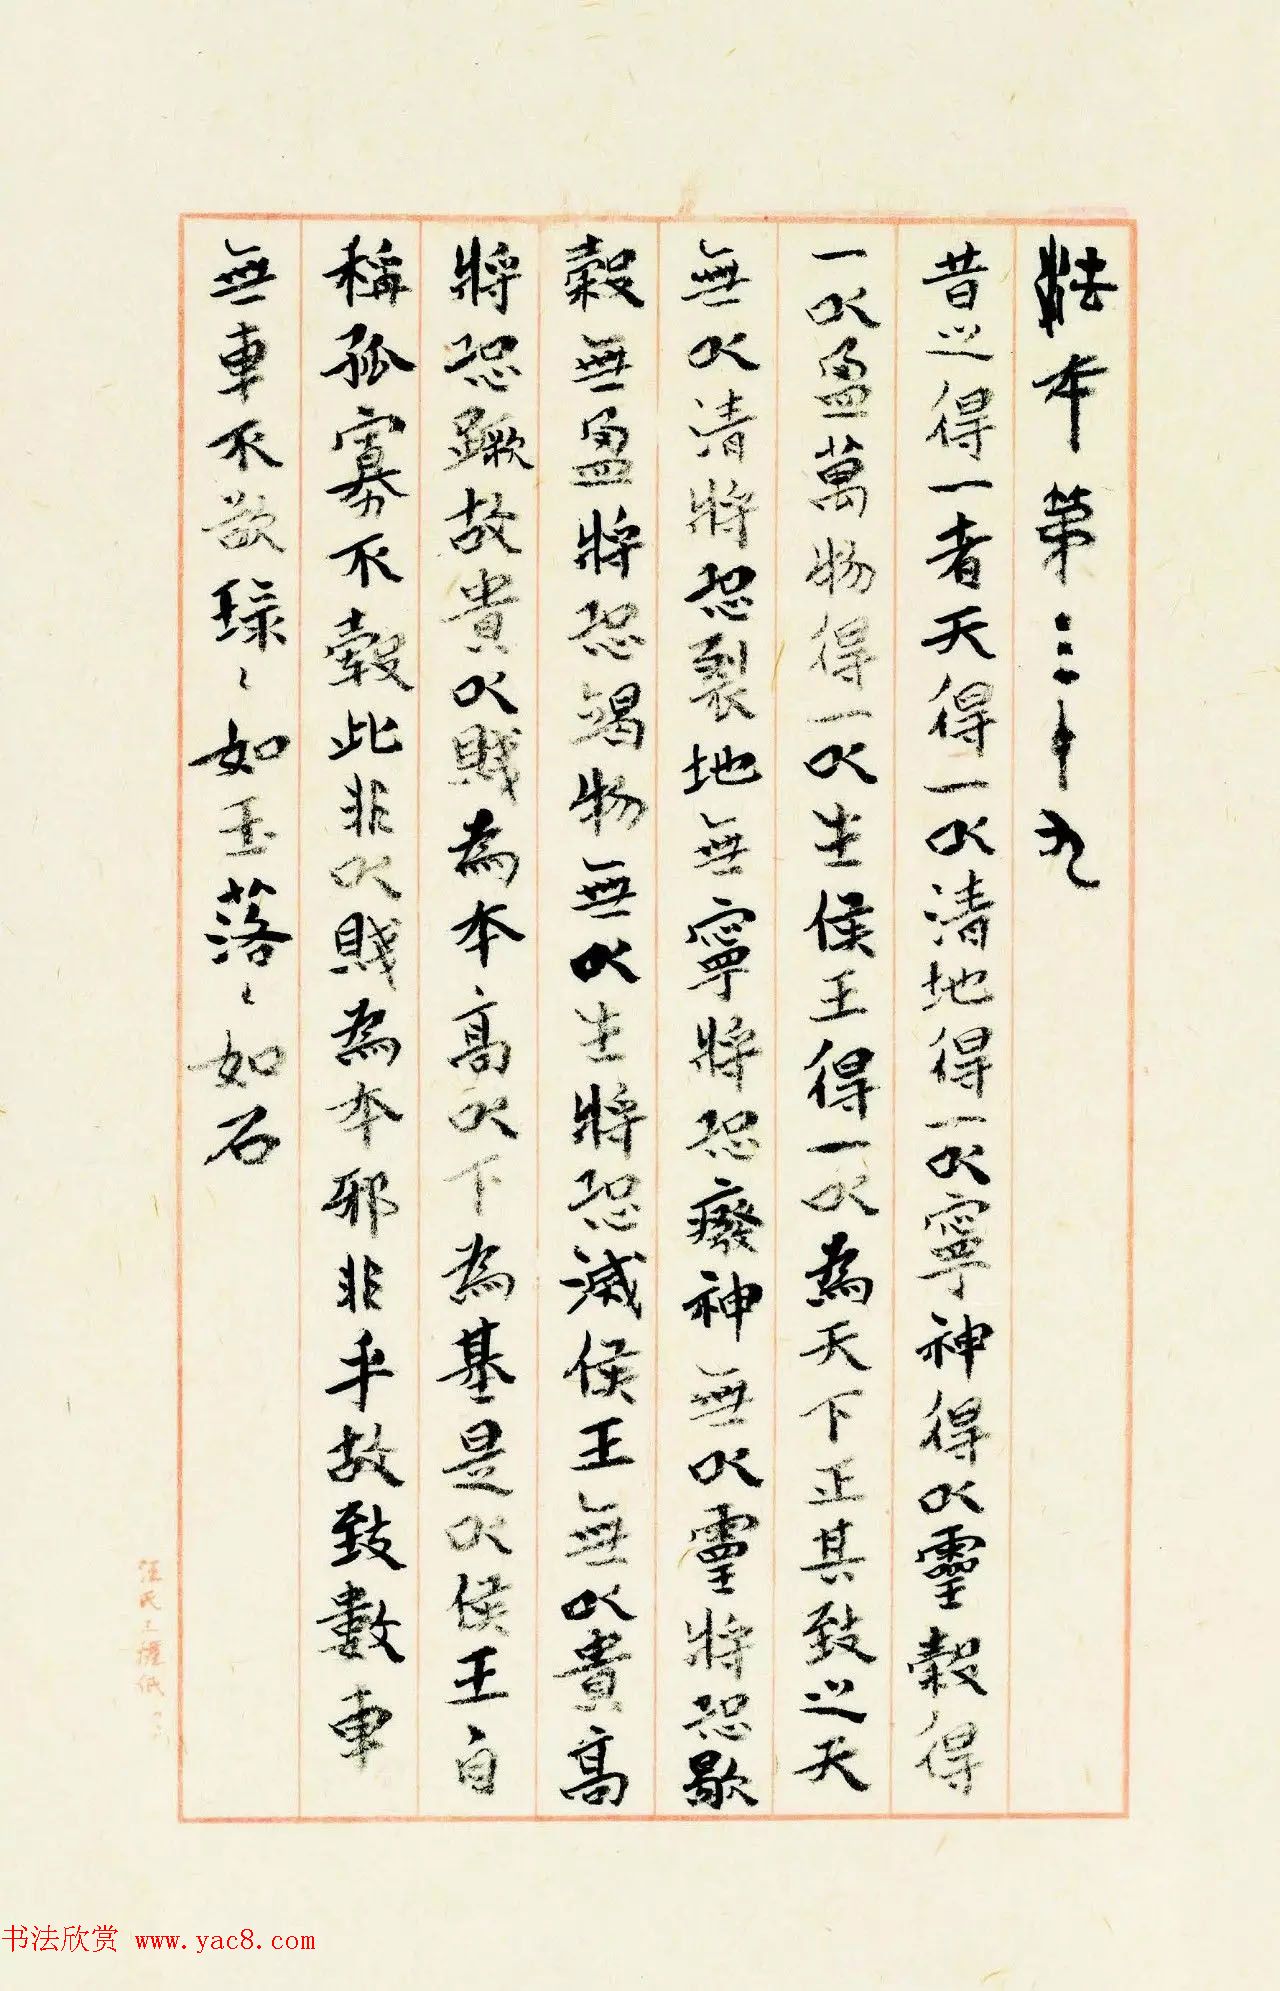 法本第三十九
昔之得一者天得一以清地得一以寧神得以靈穀得
一以盈萬物得一以生侯王得一以為天下正其致之天
無以清將恐裂地無寧將恐癈神無以靈將恐歇
穀無盈將恐竭物無以生將恐滅侯王無以貴高
將恐蹶故貴以賤為本高以下為基是以侯王自
稱孤寡不穀此非以賤為本邪非乎故致數車
無車不欲琭〻如玉落〻如石
书法欣赏 www.yac8.com